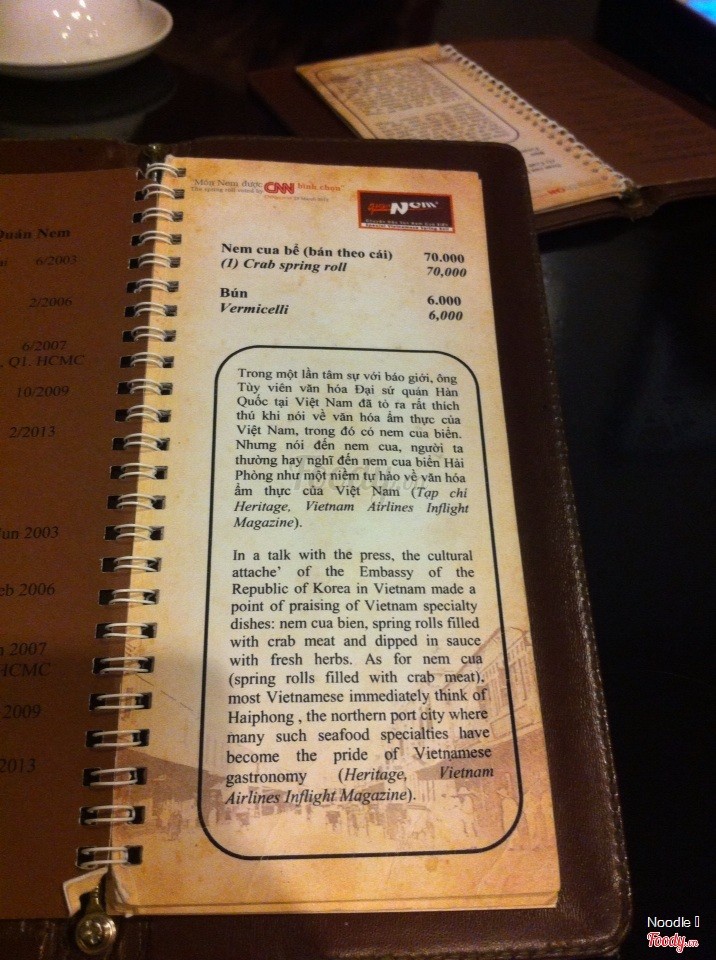 Quán Nem
6/2003
2/2006
6/2007
, Q1. HCMC
10/2009
2/2013
un 2003
eb 2006
2007
HCMC
2009
2013
"Món Nem được CNN bình chọn"
The spring roll voted by CNN
Nem
Nem cua bể (bán theo cái) 70.000
(1) Crab spring roll 70,000
Bún 6.000
Vermicelli 6,000
Trong một lần tâm sự với báo giới, ông
Tùy viên văn hóa Đại sứ quán Hàn
Quốc tại Việt Nam đã tỏ ra rất thích
thú khi nói về văn hóa ẩm thực của
Việt Nam, trong đó có nem cua biển.
Nhưng nói đến nem cua, người ta
thường hay nghĩ đến nem cua biển Hải
Phòng như một niềm tự hào về văn hóa
ẩm thực của Việt Nam (Tạp chí
Heritage, Vietnam Airlines Inflight
Magazine).
In a talk with the press, the cultural
attache' of the Embassy of the
Republic of Korea in Vietnam made a
point of praising of Vietnam specialty
dishes: nem cua bien, spring rolls filled
with crab meat and dipped in sauce
with fresh herbs. As for nem cua
(spring rolls filled with crab meat),
most Vietnamese immediately think of
Haiphong , the northern port city where
many such seafood specialties have
become the pride of Vietnamese
gastronomy (Heritage, Vietnam
Airlines Inflight Magazine).
Noodle
Foody.vn